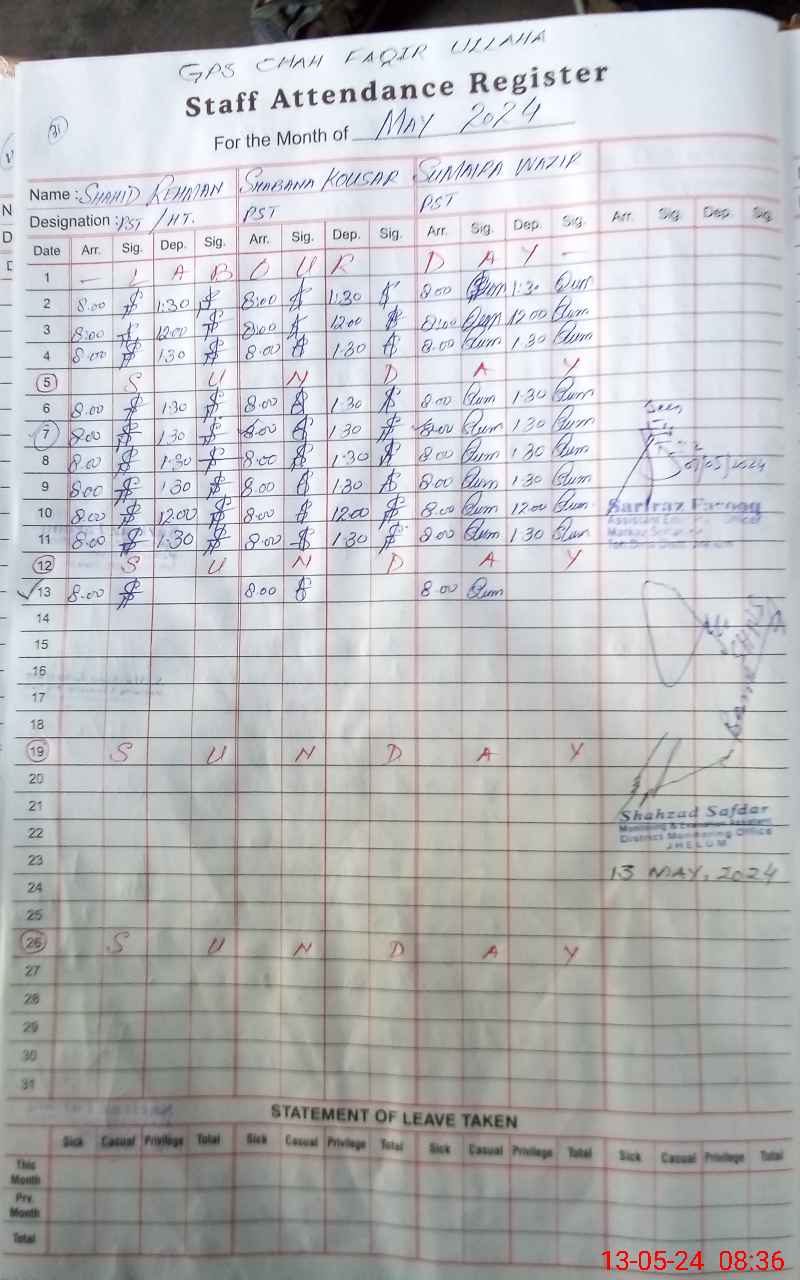 GPS CHAH FAQIR ULLAHA
Staff Attendance Register
31
For the Month of MAY 2024
Name : SHAHID REHMAN SHABANA KOUSAR SUMAIRA WAZIR
Designation : PST / HT. PST PST
Date Arr. Sig. Dep. Sig. Arr. Sig. Dep. Sig. Arr. Sig. Dep. Sig. Arr. Sig. Dep. Sig.
1 — L A B O U R D A Y —
2 8.00 1:30 8:00 1:30 8.00 1:30
3 8:00 12.00 8:00 12.00 8:00 12.00
4 8.00 1.30 8.00 1.30 8.00 1.30
5 S U N D A Y
6 8.00 1.30 8.00 1.30 8.00 1.30
7 8.00 1.30 8.00 1.30 8.00 1.30
Seen
8 8.00 1.30 8.00 1.30 8.00 1.30
07/05/2024
9 8.00 1.30 8.00 1.30 8.00 1.30
10 8.00 12.00 8.00 12.00 8.00 12.00
Sarfraz Farooq
11 8.00 1.30 8.00 1.30 8.00 1.30
12 S U N D A Y
13 8.00 8.00 8.00
14
15
16
17
18
19 S U N D A Y
20
21
Shahzad Safdar
Monitoring & Evaluation Assistant
District Monitoring Office
JHELUM
22
23
13 MAY, 2024
24
25
26 S U N D A Y
27
28
29
30
31
STATEMENT OF LEAVE TAKEN
Sick Casual Privilege Total Sick Casual Privilege Total Sick Casual Privilege Total Sick Casual Privilege Total
This Month
Prv. Month
Total
13-05-24 08:36